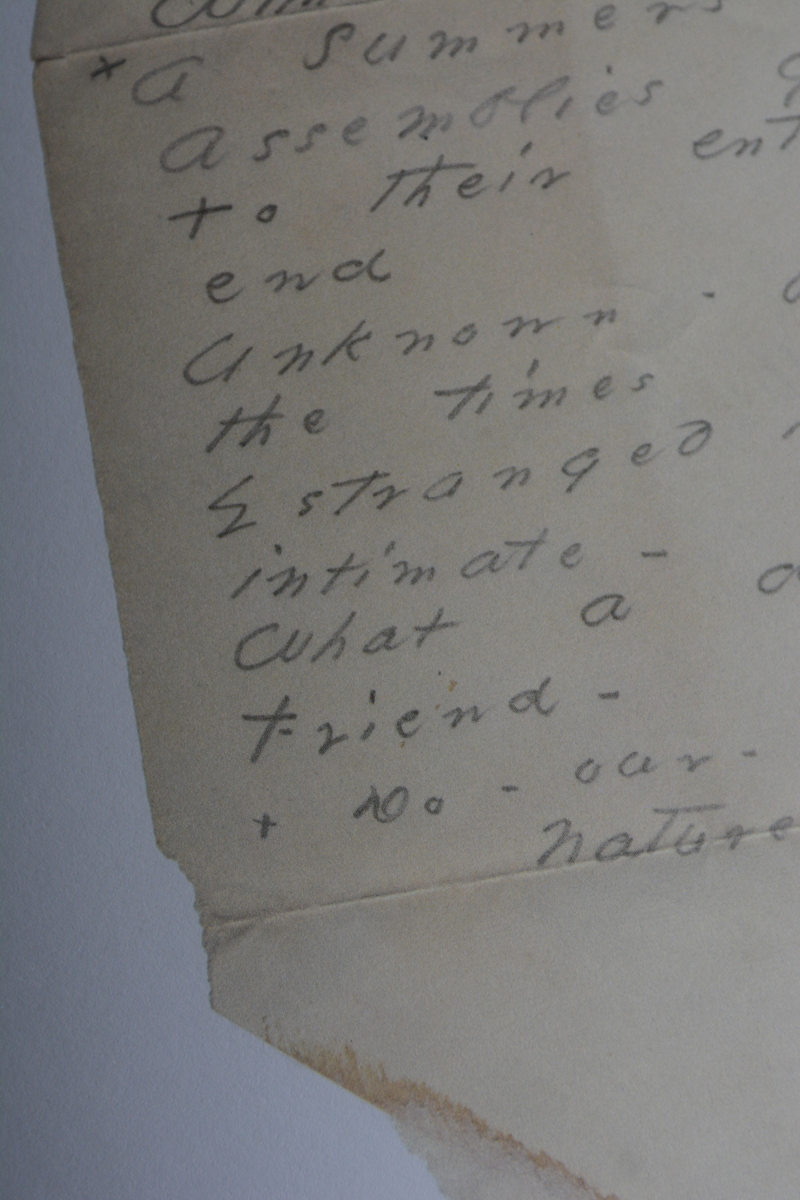 + A summers
Assemblies
to their
end
Unknown -
the times
Estranged
intimate -
What a
friend -
+ Do - our -
nature